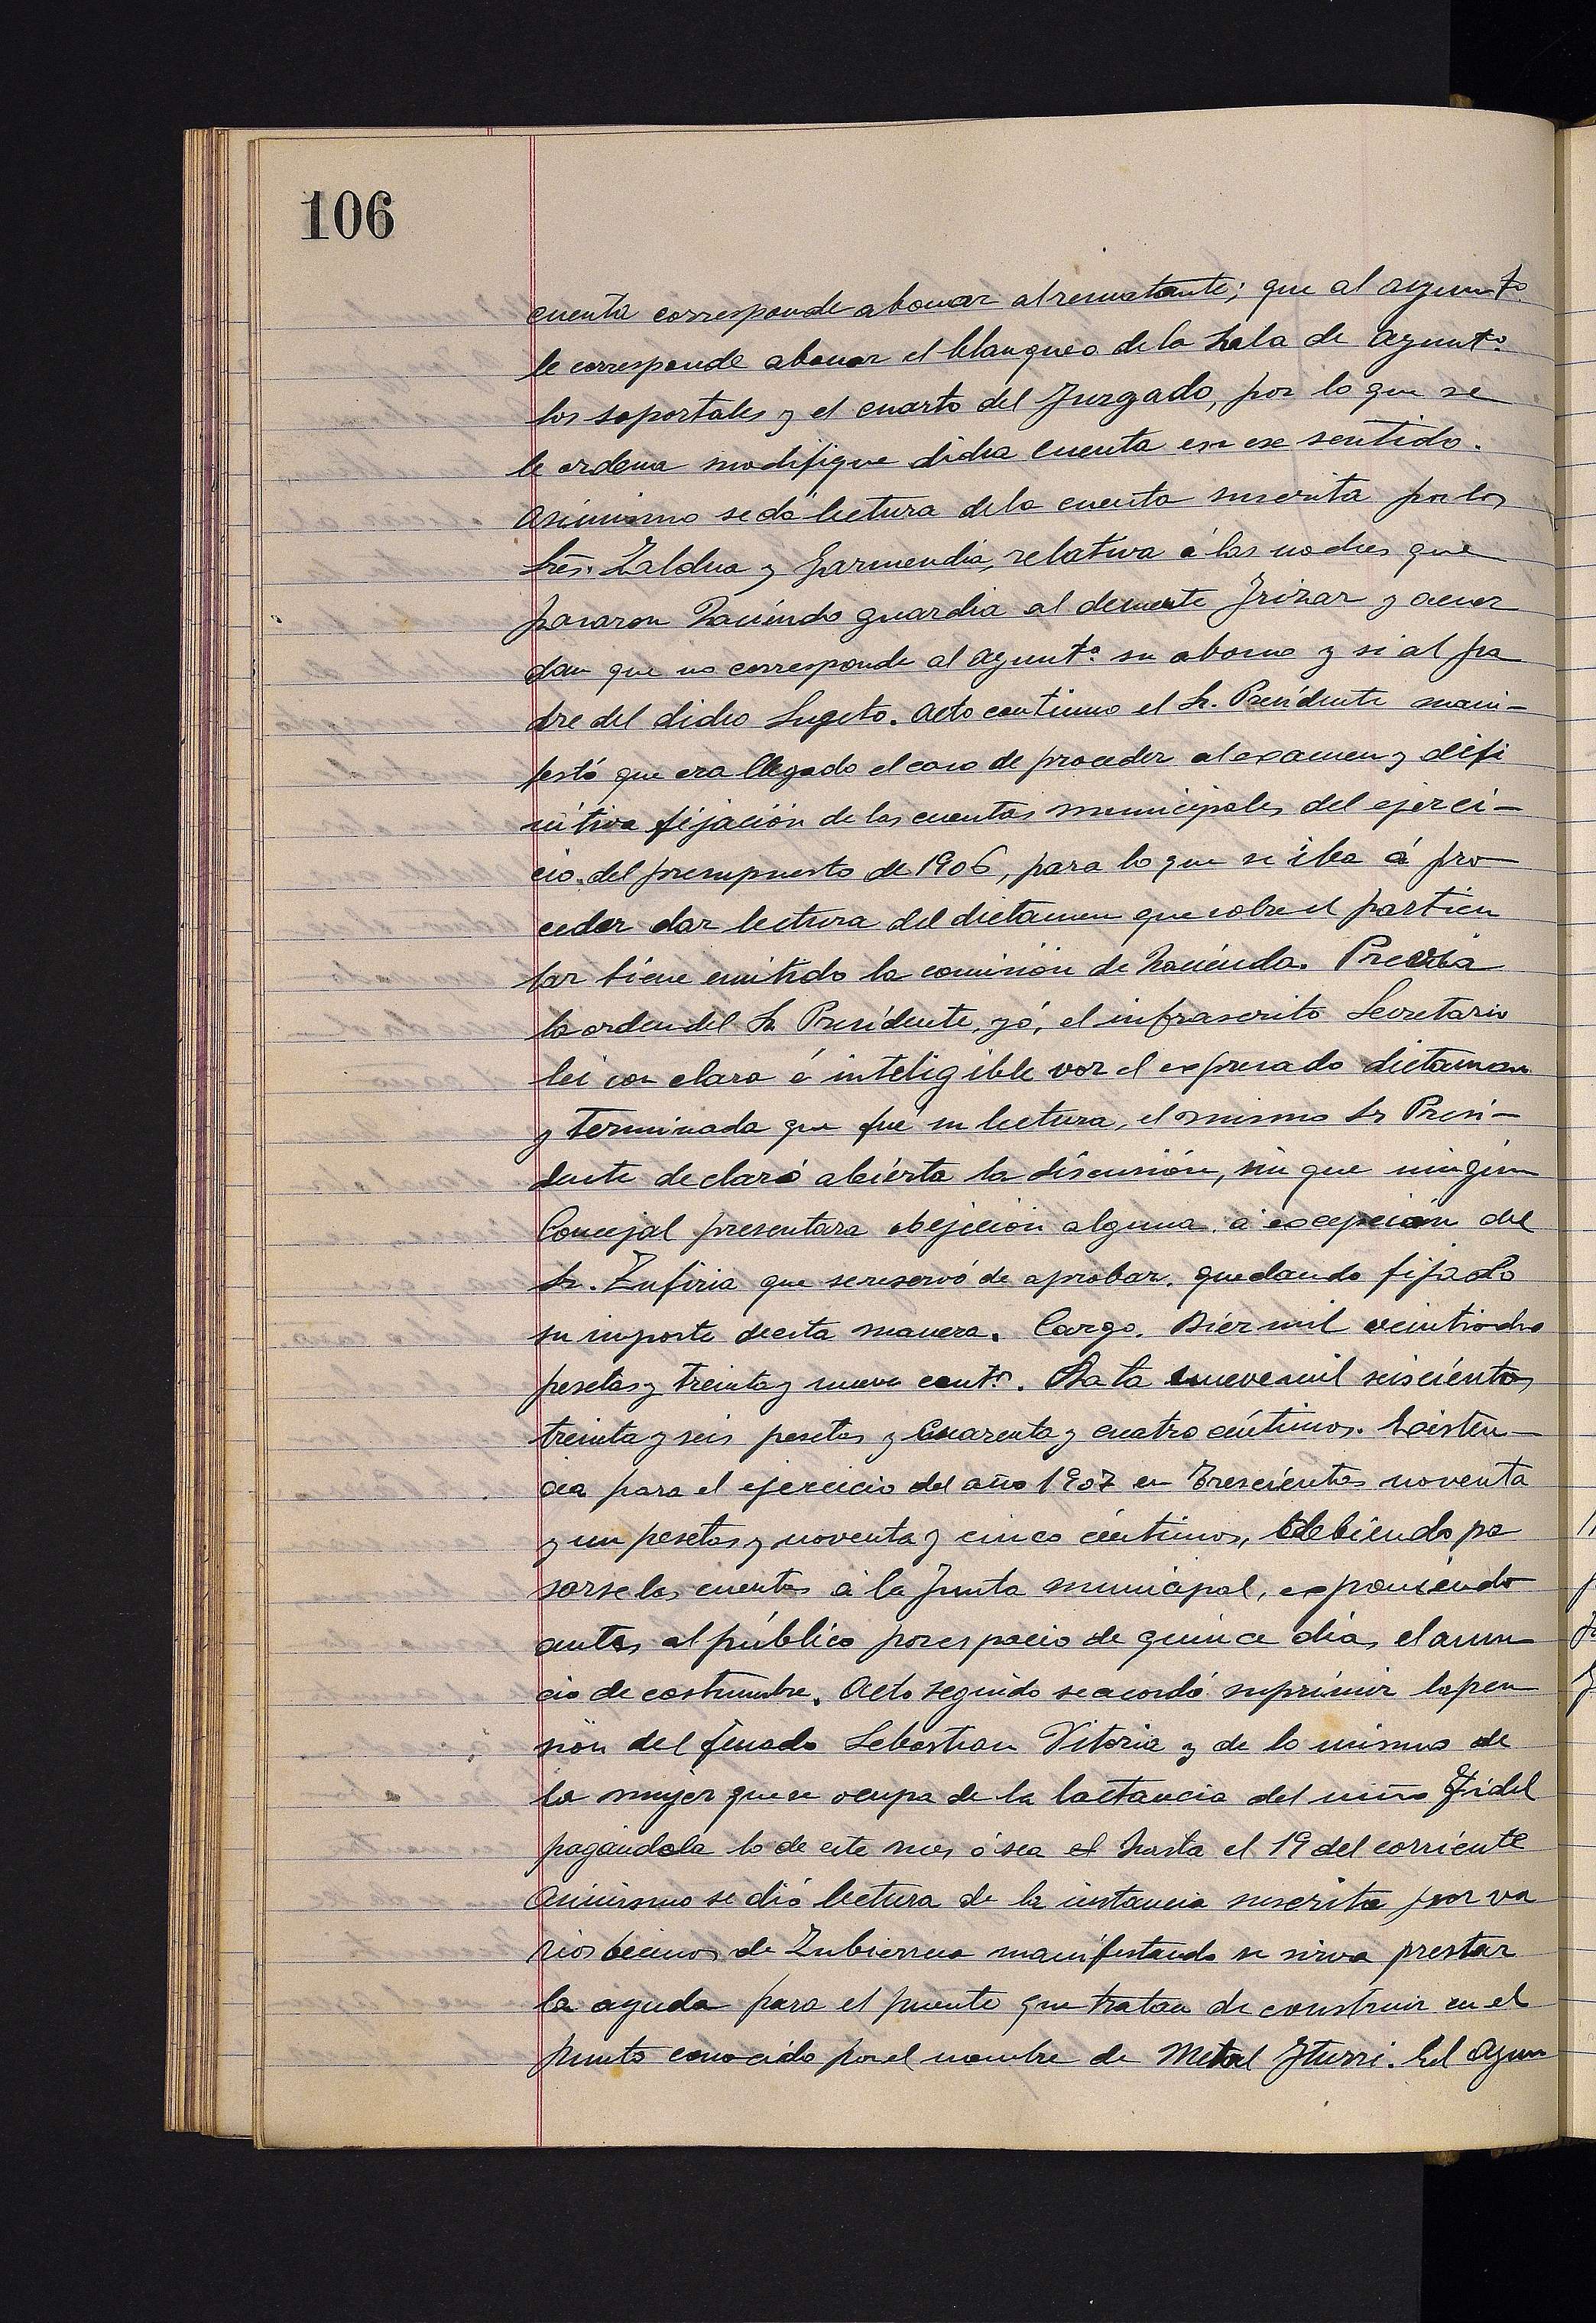 106
cuenta corresponde abonar al rematante; que al ayunt.º
le corresponde abonar el blanqueo de la Sala de Ayunt.º
los soportales y el cuarto del Juzgado, por lo que se
le ordena modifique dicha cuenta en ese sentido.
Asimismo se dá lectura de la cuenta suscrita por los
Sres. Zaldua y Garmendia, relativa á las noches que
pasaron haciendo guardia al demente Irizar y acuer
dan que no corresponde al Ayunt.º su abono y si al pa
dre del dicho Sugeto. Acto continuo el Sr. Presidente mani-
festó que era llegado el caso de proceder al examen y difi
nitiva fijación de las cuentas municipales del ejerci-
cio del presupuesto de 1906, para lo que se iba á pro
ceder dar lectura del dictamen que sobre el particu
lar tiene emitido la comisión de hacienda. Previa
la orden del Sr Presidente, yó, el infrascrito Secretario
lei con clara é inteligible voz el expresado dictamen
y terminada que fué su lectura, el mismo Sr Presi-
dente declaró abierta la discusión, sin que ningun
Concejal presentara objeción alguna á excepción del
Sr. Zufiria que se reservó de aprobar. quedando fijado
su importe de esta manera. Cargo. Diez mil veintiocho
pesetas y treinta y nueve cent.s. Data nueve mil seiscientos
treinta y seis pesetas y cuarenta y cuatro céntimos. Existen-
cia para el ejercicio del año 1907 en Trescientas noventa
y un pesetas y noventa y cinco céntimos, debiendo pa
sarse las cuentas á la Junta municipal, exponiendo
antes al público por espacio de quince dias el anun
cio de costumbre. Acto seguido se acordó suprimir la pen
sión del finado Sebastian Vitoria y de lo mismo de
la mujer que se ocupa de la lactancia del niño Fidel
pagándola lo de este mes ó sea el hasta el 19 del corriente
Asimismo se dió lectura de la instancia suscrita por va
rios becinos de Zubierreca manifestando se sirva prestar
la ayuda para el puente que tratan de construir en el
punto conocido por el nombre de Metal Iturri. El Ayun